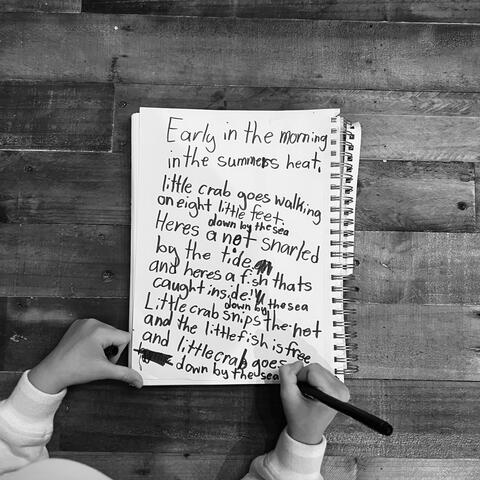 Early in the morning
in the summers heat,
little crab goes walking
on eight little feet.
down by the sea
Heres a not snarled
by the tide
and heres a fish thats
caught inside!
down by the sea
Little crab snips the not
and the littlefish is free
and little crab goes
down by the sea